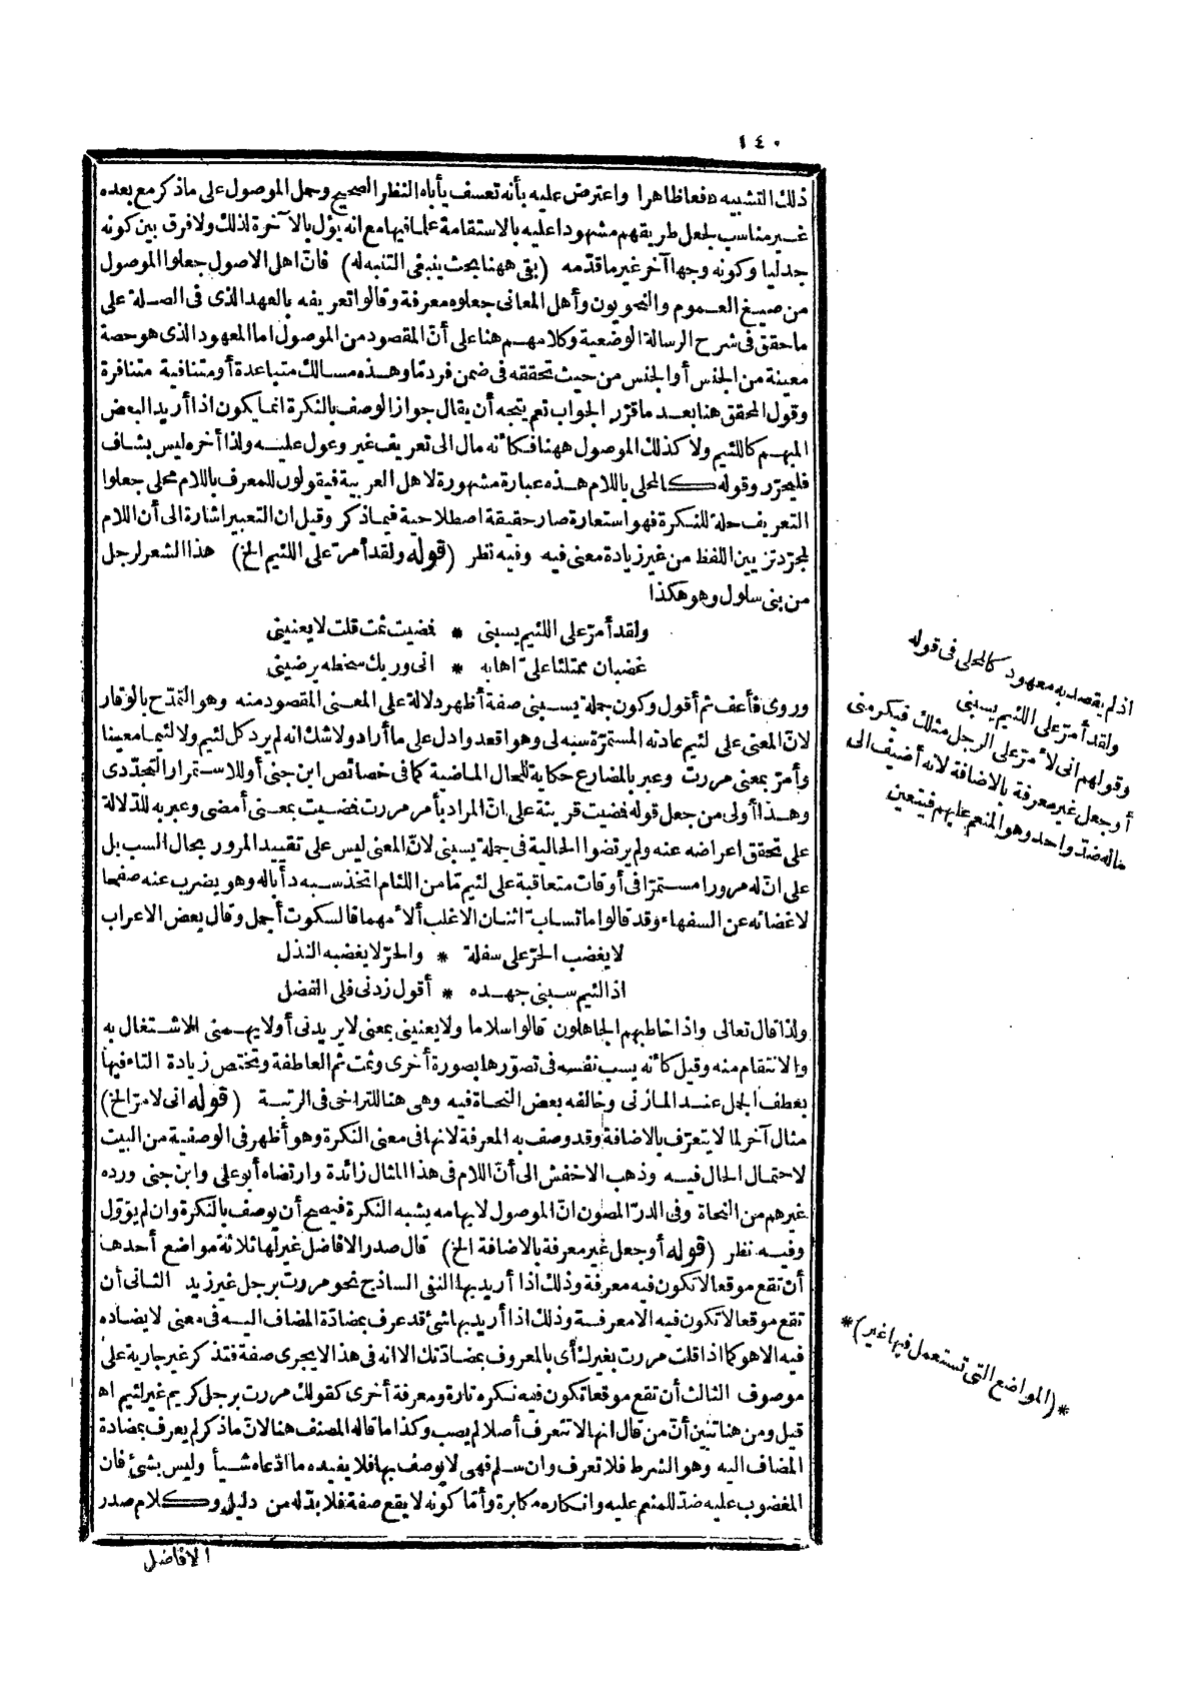 ١٤٠
ذلك التشبيه دفعا ظاهرا واعترض عليه بأنه تعسف يأباه النظر الصحيح وحمل الموصول على ما ذكر مع بعده
غير مناسب لجعل طريقهم مشهودا عليه بالاستقامة علما فيها مع انه يؤل بالآخرة لذلك ولا فرق بين كونه
جدليا وكونه وجها آخر غير ما قدّمه (بقي ههنا بحث ينبغى التنبه له) فانّ اهل الاصول جعلوا الموصول
من صيغ العموم والنحويون وأهل المعانى جعلوه معرفة وقالوا تعريفه بالعهد الذى فى الصلة على
ما حقق فى شرح الرسالة الوضعية وكلامهم هنا على أنّ المقصود من الموصول اما المعهود الذى هو حصة
معينة من الجنس أو الجنس من حيث تحققه فى ضمن فرد مّا وهذه مسالك متباعدة أو متنافية متنافرة
وقول المحقق هنا بعد ما قرّر الجواب نعم يتجه أن يقال جواز الوصف بالنكرة انما يكون اذا أريد البعض
المبهم كاللئيم ولا كذلك الموصول ههنا فكأنه مال الى تعريف غير وعول عليه ولذا أخره ليس بشاف
فليحرّر وقوله كالمحلى باللام هذه عبارة مشهورة لاهل العربية فيقولون للمعرف باللام محلى جعلوا
التعريف حلة للنكرة فهو استعارة صار حقيقة اصطلاحية فيما ذكر وقيل ان التعبير اشارة الى أن اللام
لمجرّد تزيين اللفظ من غير زيادة معنى فيه وفيه نظر (قوله ولقد أمرّ على اللئيم الخ) هذا الشعر لرجل
من بنى سلول وهو هكذا
ولقد أمرّ على اللئيم يسبنى * فضيت ثمت قلت لا يعنينى
غضبان ممتلئا علىّ اهابه * انى وربك سخطه يرضينى
وروى فأعف ثم أقول وكون جملة يسبنى صفة أظهر دلالة على المعنى المقصود منه وهو التمدّح بالوقار
لانّ المعنى على لئيم عادته المستمرّة سبه لى وهو اقعد وادل على ما أراد ولا شك انه لم يرد كل لئيم ولا لئيما معينا
وأمرّ بمعنى مررت وعبر بالمضارع حكاية للحال الماضية كما فى خصائص ابن جنى أو للاستمرار التجدّدى
وهذا أولى من جعل قوله فضيت قرينة على انّ المراد بأمر مررت فضيت بمعنى أمضى وعبر به للدلالة
على تحقق اعراضه عنه ولم يرتضوا الحالية فى جملة يسبنى لانّ المعنى ليس على تقييد المرور بحال السب بل
على انّ له مرورا مستمرّا فى أوقات متعاقبة على لئيم مّا من اللئام اتخذ سبه دأباله وهو يضرب عنه صفحا
لاغضائه عن السفهاء وقد قالوا ما تسابّ اثنان الاغلب ألأمهما فالسكوت أجمل وقال بعض الاعراب
لا يغضب الحرّ على سفلة * والحرّ لا يغضبه النذل
اذا لئيم سبنى جهده * أقول زدنى فلى الفضل
ولذا قال تعالى واذا خاطبهم الجاهلون قالوا سلاما ولا يعنينى بمعنى لا يريدنى أولا يهمنى الاشتغال به
والانتقام منه وقيل كأنه يسب نفسه فى تصوّرها بصورة أخرى وثمت ثم العاطفة وتختص زيادة التاء فيها
بعطف الجمل عند المازنى وخالفه بعض النحاة فيه وهى هنا للتراخى فى الرتبة (قوله انى لامرّ الخ)
مثال آخر لما لا يتعرّف بالاضافة وقد وصف به المعرفة لانها فى معنى النكرة وهو أظهر فى الوصفية من البيت
لاحتمال الحال فيه وذهب الاخفش الى أنّ اللام فى هذا المثال زائدة وارتضاه أبو على وابن جنى ورده
غيرهم من النحاة وفى الدرّ المصون انّ الموصول لابهامه يشبه النكرة فيصح أن يوصف بالنكرة وان لم يؤوّل
وفيه نظر (قوله أو جعل غير معرفة بالاضافة الخ) قال صدر الافاضل غير لها ثلاثة مواضع أحدها
أن تقع موقعا لا تكون فيه معرفة وذلك اذا أريد بها النفى الساذج نحو مررت برجل غير زيد الثانى أن
تقع موقعا لا تكون فيه الا معرفة وذلك اذا أريد بها شئ قد عرف بمضادّة المضاف اليه فى معنى لا يضاده
فيه الا هو كما اذا قلت مررت بغيرك أى بالمعروف بمضادّتك الا انه فى هذا لا يجرى صفة فتذكر غير جارية على
موصوف الثالث أن تقع موقعا تكون فيه نكرة تارة ومعرفة أخرى كقولك مررت برجل كريم غير لئيم اه
قيل ومن هنا تبين أنّ من قال انها لا تتعرف أصلا لم يصب وكذا ما قاله المصنف هنا لانّ ما ذكر لم يعرف بمضادة
المضاف اليه وهو الشرط فلا تعرف وان سلم فهى لا يوصف بها فلا يفيده ما ادّعاه شيأ وليس بشئ فان
المغضوب عليه ضدّ للمنعم عليه وانكاره مكابرة وأمّا كونه لا يقع صفة فلا بدّ له من دليل وكلام صدر
الافاضل
اذ لم يقصد به معهود كالمحلى فى قوله
ولقد أمرّ على اللئيم يسبنى
وقولهم انى لأمرّ على الرجل مثلك فيكرمنى
أو جعل غير معرفة بالاضافة لانه أضيف الى
ماله ضدّ واحد وهو المنعم عليهم فيتعين
*(المواضع التى تستعمل فيها غير)*